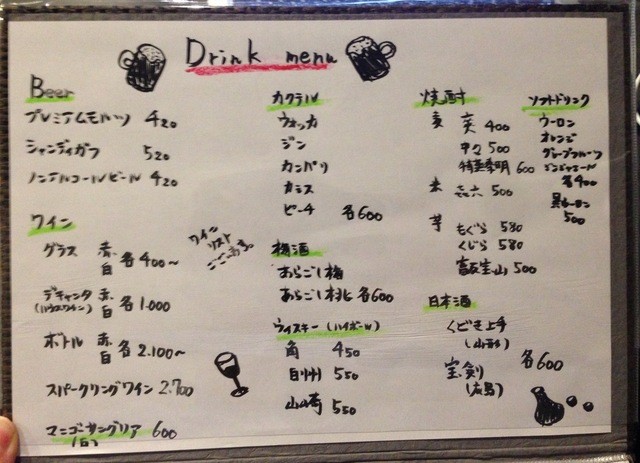 Drink menu
Beer
プレミアムモルツ 420
シャンディガフ 520
ノンアルコールビール 420
ワイン
グラス 赤 白 各400~
デキャンタ (ハウスワイン) 赤 白 各1.000
ボトル 赤 白 各2.100~
スパークリングワイン 2.700
マンゴーサングリア 600
(白)
ワイン
リスト
ございます。
カクテル
ウォッカ
ジン
カンパリ
カシス
ピーチ 各600
梅酒
あらごし梅
あらごし桃 各600
ウィスキー (ハイボール)
角 450
白州 550
山崎 550
焼酎
麦
400
中々 500
600
米 㐂六 500
芋
もぐら 580
くじら 580
富乃宝山 500
日本酒
くどき上手
(山形)
宝剣
(広島)
各600
ソフトドリンク
ウーロン
オレンジ
グレープフルーツ
ジンジャエール
各400
黒ウーロン
500